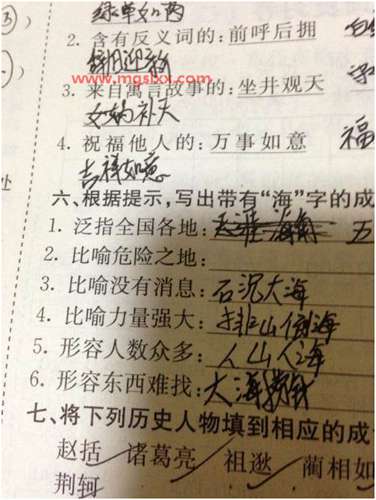 ③
绿草如茵
2. 含有反义词的：前呼后拥
辞旧迎新
www.mgslxx.com
3. 来自寓言故事的：坐井观天
女娲补天
4. 祝福他人的：万事如意 福
吉祥如意
处
六、根据提示，写出带有“海”字的成
1. 泛指全国各地：天涯海角 五
2. 比喻危险之地：
3. 比喻没有消息：石沉大海
4. 比喻力量强大：排山倒海
5. 形容人数众多：人山人海
6. 形容东西难找：大海捞针
七、将下列历史人物填到相应的成
赵括 诸葛亮 祖逖 蔺相如
荆轲